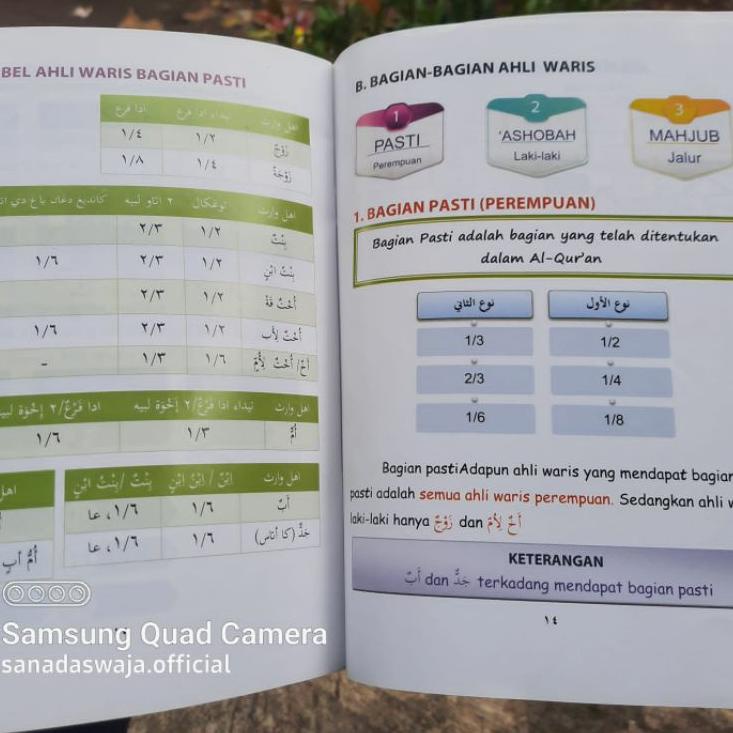 BEL AHLI WARIS BAGIAN PASTI
اهل وارث تيداء ادا فرع ادا فرع
زَوْجٌ ١/٢ ١/٤
زَوْجَةٌ ١/٤ ١/٨
اهل وارث توڠڬال ٢ اتاو لبيه
بِنْتٌ ١/٢ ٢/٣
بِنْتُ ابْنٍ ١/٢ ٢/٣ ١/٦
أُخْتٌ قَةٌ ١/٢ ٢/٣
أُخْتٌ لِأَبٍ ١/٢ ٢/٣ ١/٦
أَخٌ/أُخْتٌ لِأُمٍّ ١/٦ ١/٣ -
اهل وارث تيداء ادا فَرْعٌ/٢ إِخْوَة لبيه ادا فَرْعٌ/٢ إِخْوَة
أُمٌّ ١/٣ ١/٦
اهل وارث اِبْنٌ / اِبْنُ ابْنٍ بِنْتٌ / بِنْتُ ابْنٍ
أَبٌ ١/٦ ١/٦، عا
جَدٌّ (كا أتاس) ١/٦ ١/٦، عا
اهل
أُمُّ أَبٍ
B. BAGIAN-BAGIAN AHLI WARIS
1 2 3
PASTI 'ASHOBAH MAHJUB
Perempuan Laki-laki Jalur
1. BAGIAN PASTI (PEREMPUAN)
Bagian Pasti adalah bagian yang telah ditentukan
dalam Al-Qur'an
نوع الأول نوع الثاني
1/2 1/3
1/4 2/3
1/8 1/6
Bagian pastiAdapun ahli waris yang mendapat bagian
pasti adalah semua ahli waris perempuan. Sedangkan ahli w
laki-laki hanya زَوْجٌ dan أَخٌ لِأُمٍّ
KETERANGAN
أَبٌ dan جَدٌّ terkadang mendapat bagian pasti
١٤
Samsung Quad Camera
sanadaswaja.official